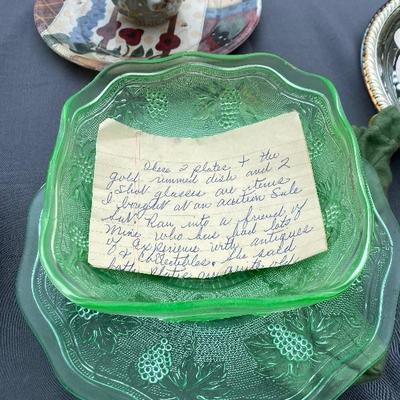 These 2 plates + the
gold rimmed dish and 2
shot glasses are items
I bought at an auction sale
but Ran into a friend of
mine who has had lots
of experience with antiques
& collectibles. She said
both plates are quite old